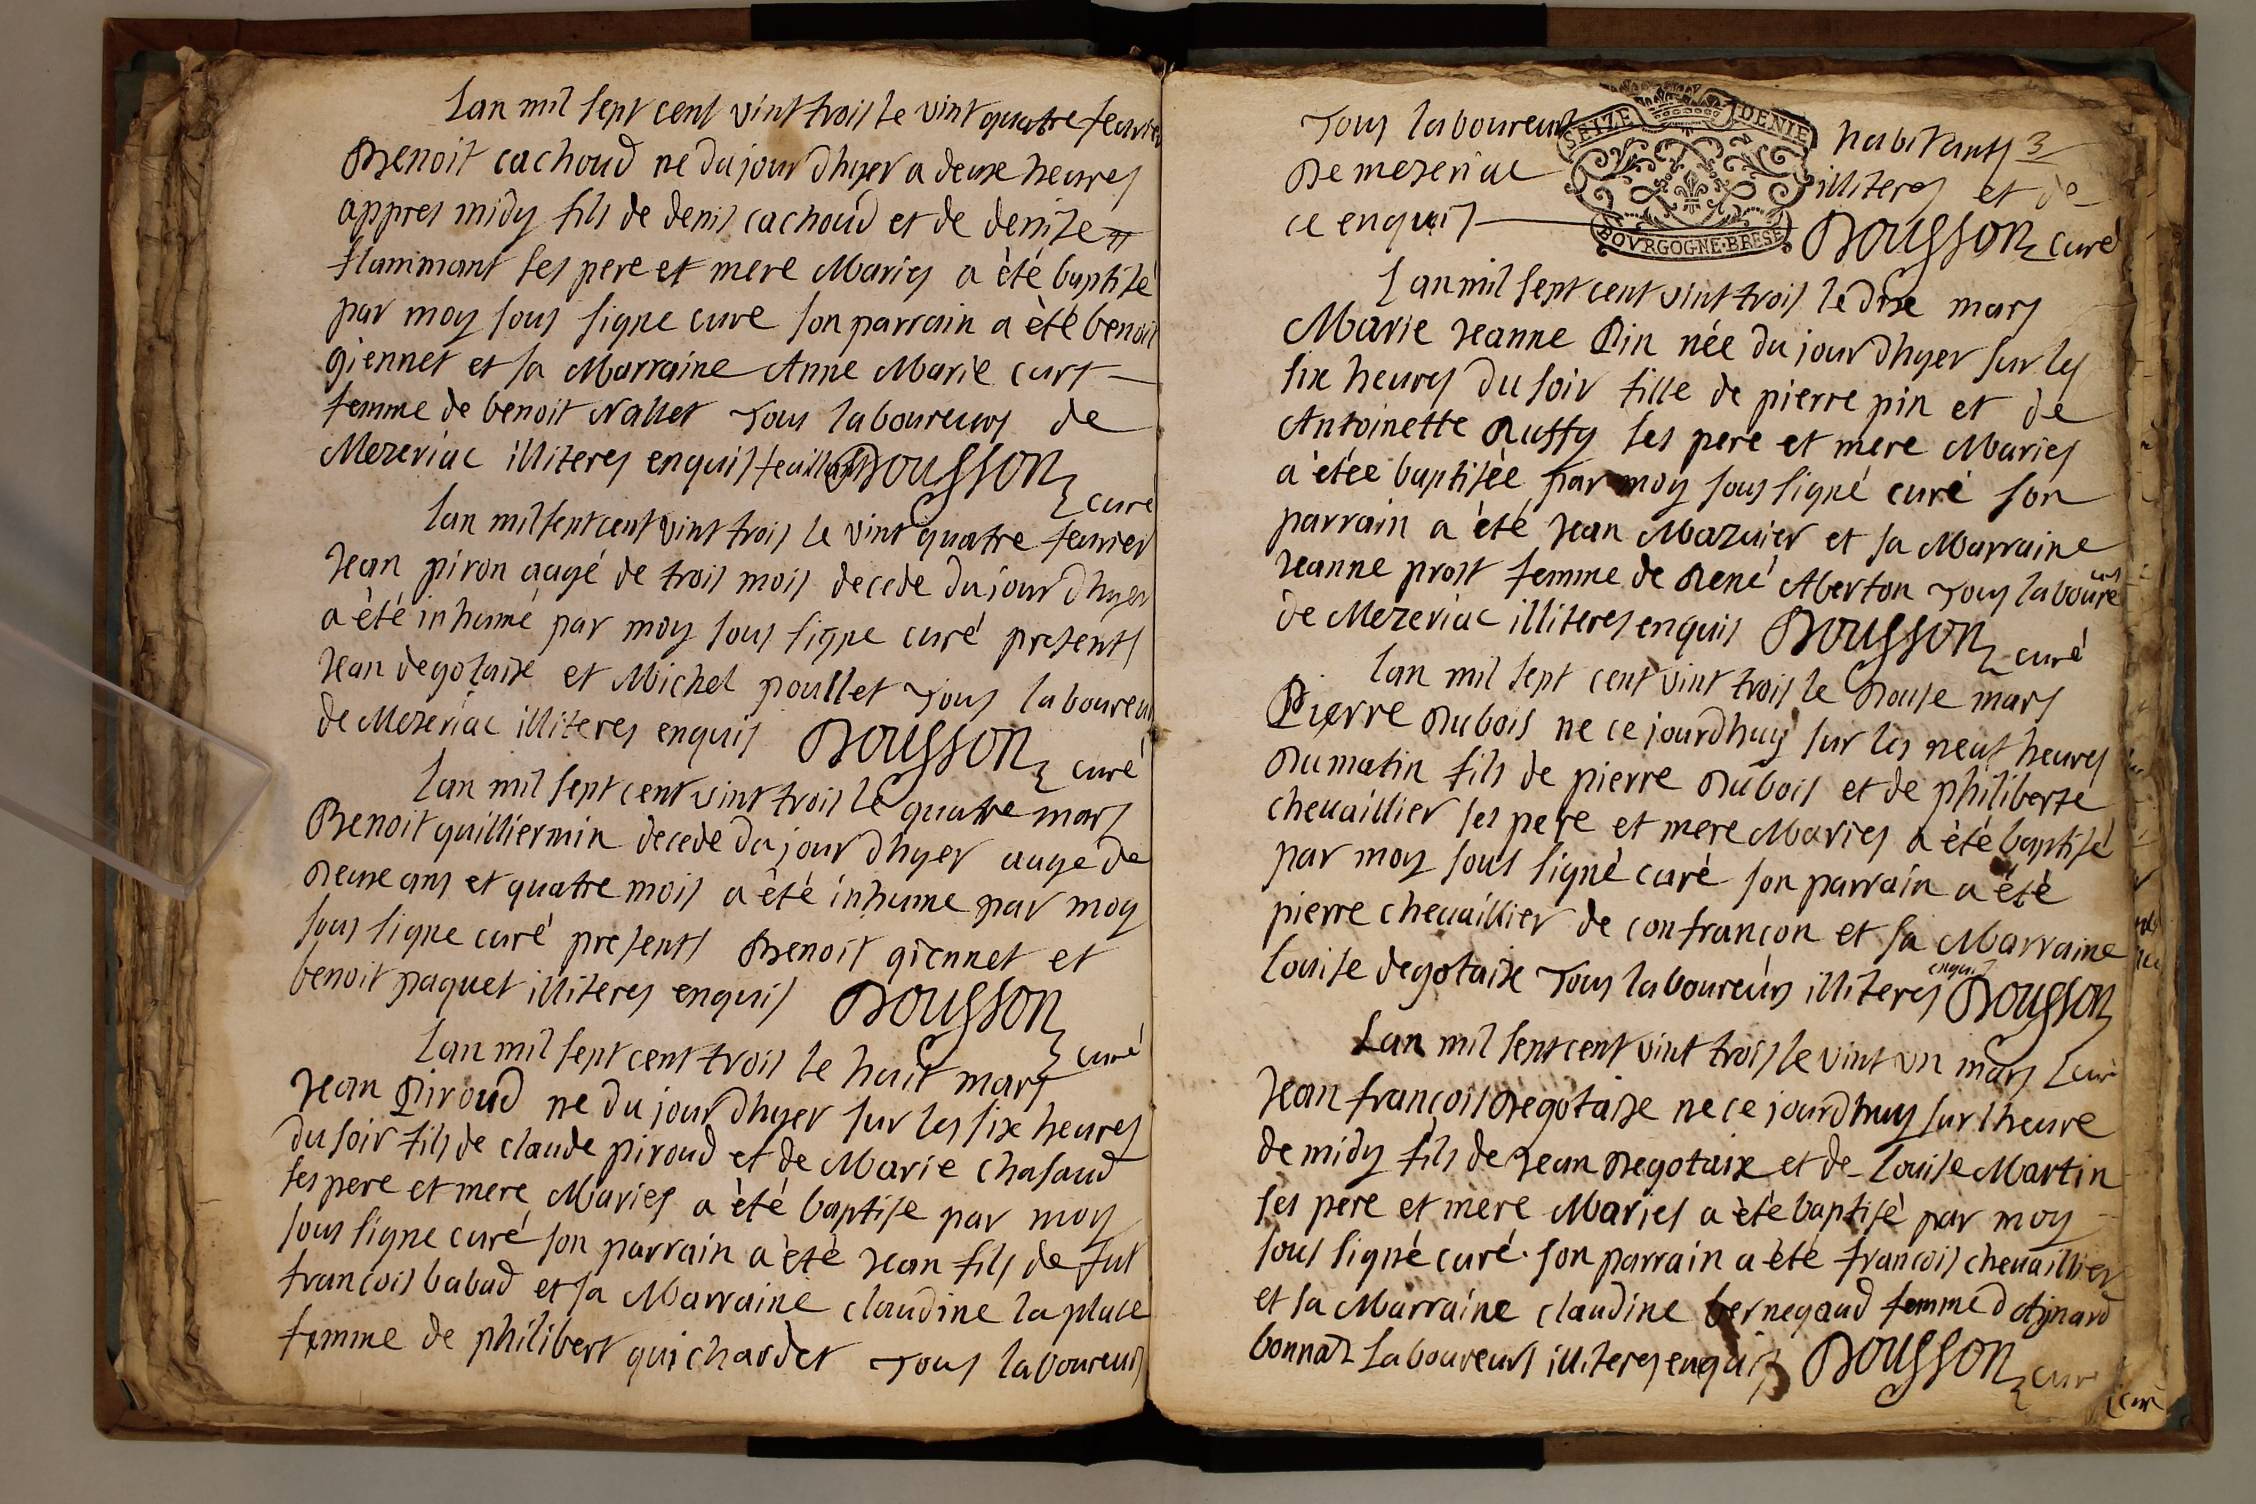 Lan mil sept cent vint trois le vint quatre feavrier
Benoit cachoud ne du jour dhyer a deux heures
appres midy fils de denis cachoud et de denise
flammant ses pere et mere Maries a été baptisé
par moy sous signe cure son parrain a été benoit
giennet et sa Marraine Anne Marie curt
femme de benoit Nallet Tous laboureurs de
Mezeriac illiteres enquis Bousson
curé
Lan mil sept cent vint trois le vint quatre fevrier
Jean piron aagé de trois mois decede du jour dhyer
a été inhumé par moy sous signe curé presents
Jean degotaix et Michel poullet Tous laboureurs
de Mezeriac illiteres enquis Bousson curé
Lan mil sept cent vint trois le quatre mars
Benoit quilliermin decede du jour dhyer aage de
Deux ans et quatre mois a été inhume par moy
sous signe curé presents Benoit giennet et
benoit paquet illiteres enquis Bousson
curé
Lan mil sept cent trois le huit mars
Jean Piroud ne du jour dhyer sur les six heures
du soir fils de claude piroud et de Marie chasaud
ses pere et mere Maries a été baptise par moy
sous signe curé son parrain a été Jean fils de fut
francois babad et sa Marraine claudine la place
femme de philibert guichardet Tous laboureurs
Tous laboureurs habitants 3
De mezeriac illiteres et de
ce enquis Bousson curé
SEIZE DENIE
BOVRGOGNE·BRESE
Lan mil sept cent vint trois le dix mars
Marie Jeanne Pin née du jour dhyer sur les
six heures du soir fille de pierre pin et de
Antoinette Ruffy ses pere et mere Maries
a étée baptisée par moy sous signé curé son
parrain a été Jean Mazuier et sa Marraine
Jeanne prost femme de René Aberton Tous laboureurs
de Mezeriac illiteres enquis Bousson curé
Lan mil sept cent vint trois le Douse mars
Pierre Dubois ne ce jourdhuy sur les neuf heures
Du matin fils de pierre Dubois et de philiberte
chevaillier ses pere et mere Maries a été baptisé
par moy sous signé curé son parrain a été
pierre chevaillier de confrancon et sa Marraine
Louise degotaix Tous laboureurs illiteres enquis Bousson
curé
Lan mil sept cent vint trois le vint un mars
Jean francois Degotaix ne ce jourdhuy sur lheure
de midy fils de Jean Degotaix et de Louise Martin
ses pere et mere Maries a été baptisé par moy
sous signé curé son parrain a été francois chevaillier
et sa Marraine claudine bernegaud femme d Aynard
bonnaz Laboureurs illiteres enquis Bousson curé
curé